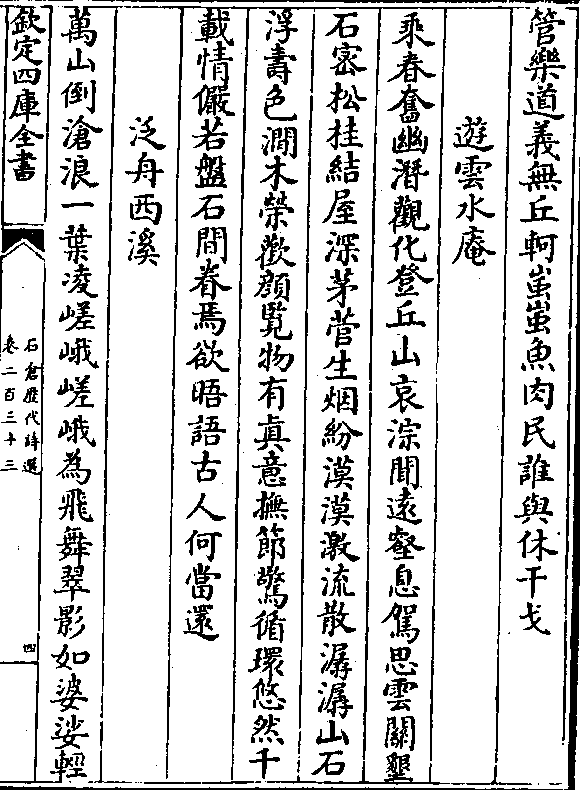 管樂道義無丘軻蚩蚩魚肉民誰與休干戈
遊雲水庵
乘春奮幽潛觀化登丘山哀淙聞遠壑息駕思雲關墾
石密松挂結屋深茅菅生烟紛漠漠激流散潺潺山石
浮壽色澗木榮歡顔覧物有真意撫節驚循環悠然千
載情儼若盤石間眷焉欲晤語古人何當還
泛舟西溪
萬山倒滄浪一葉凌嵯峨嵯峨為飛舞翠影如婆娑輕
欽定四庫全書
石倉歷代詩選
卷二百三十三
四